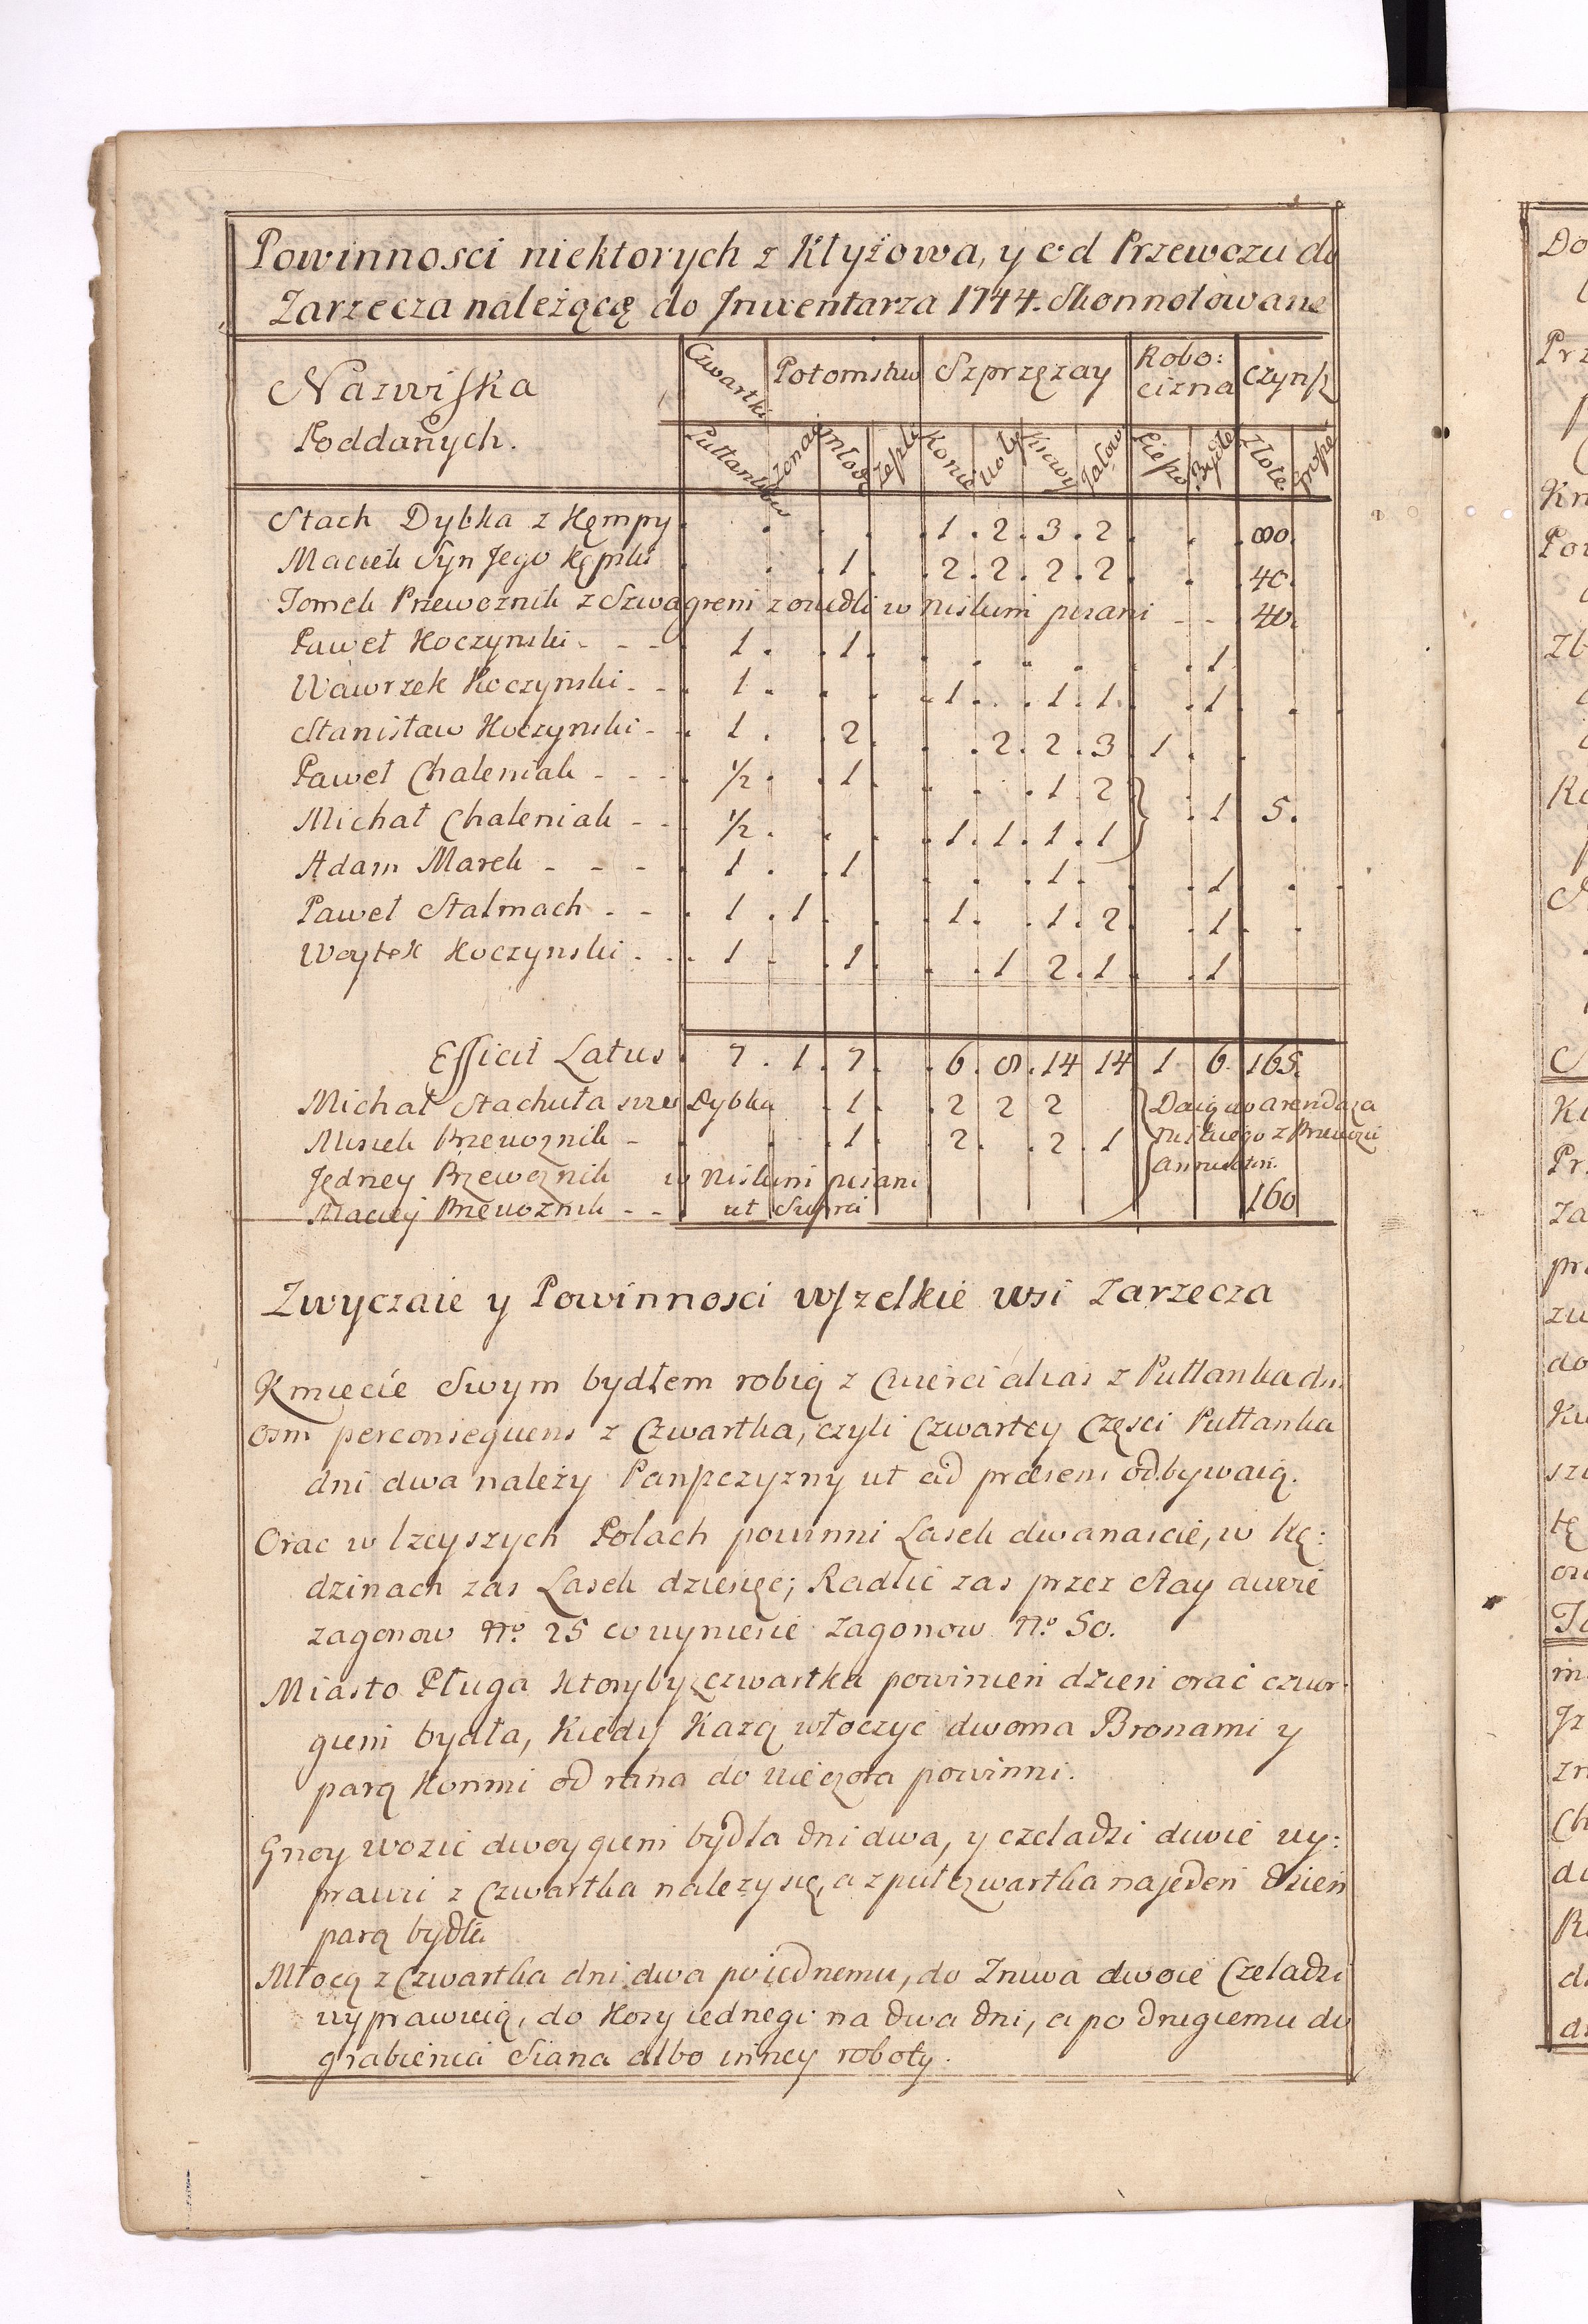 Powinnosci niektorych z Kłyżowa, y od Przewozu do
Zarzecza należącę do Inwentarza 1744. Skonnotowane
Nazwiska
Poddanych.
Czwartki
Potomstwo
Szprzęzay
Robo:
cizna
Czynsz
Pułłankow
Zonaci
Młodz
Konie
Woły
Krowy
Jałow
Pieszo
Bydłe
Złote
Grosze
Stach Dybka z Kęmpy . . . . 1 . 2 . 3 . 2 . . 80.
Maciek Syn Jego Kępski . . 1 . . 2 . 2 . 2 . 2 . . 40.
Tomek Przewoznik z Szwagrem z osiedli w Niskim pisani - - 40.
Paweł Koczynski - - - 1 . . 1 . . . . . . 1
Wawrzek Koczynski - - . 1 . . . . 1 . . 1 . 1 . . 1 . .
Stanisław Koczynski - . 1 . . 2 . . . 2 . 2 . 3 1 . .
Paweł Chaleniak - - - . ½ . . 1 . . . . 1 . 2 } . 1 5.
Michał Chaleniak - - ½ . . . . 1 . 1 . 1 . 1
Adam Marek - - - . 1 . . 1 . . . 1 . . . 1 . .
Paweł Stalmach . - . 1 . 1 . . . 1 . . 1 . 2 . 1 . .
Woytek Koczynski . . . 1 . . 1 . . . 1 2 . 1 . . 1
Efficit Latus . 7 . 1 . 7 . . 6 . 8 . 14 14 1 . 6 165.
Michał Stachuła sive Dybka . 1 . . 2 2 2 } Daią do arendarza
Misiek Przewoznik - . . . 1 . . 2 . . 2 . 1 niskiego z Przewozu
Jędrzey Przewoznik w Niskim pisani
Maciey Przewoznik - - . ut Supra 160
Zwyczaie y Powinnosci wszelkie wsi Zarzecza
Kmięcie Swym bydłem robią z Cwierci alias z Pułłanka dni
osm per consequens z Czwartka, czyli Czwartey Części Pułłanka
dni dwa należy Panszczyzny ut ad præsens odbywaią.
Orac w lzeyszych Polach powinni Lasek dwanascie, w Kę:
dzinach zas Lasek dziesięc; Radlic zas przez Stay dwoie
zagonow No. 25 co wyniesie zagonow No. 50.
Miasto Pługa ktoryby z czwartka powinien dzień orać czwor-
giem bydła, Kiedy Każą włoczyć dwoma Bronami y
parą Konmi od rana do wieczora powinni.
Gnoy wozic dwoygiem bydła dni dwa, y czeladzi dwoie wy:
prawić z Czwartka należy się, a z puł czwartka na jeden dzień
parą bydła
Młocą z Czwartka dni dwa po jednemu, do Zniwa dwoie Czeladzi
wyprawuią, do Kosy iednego na dwa dni, a po drugiemu do
grabienia Siana albo inney roboty.